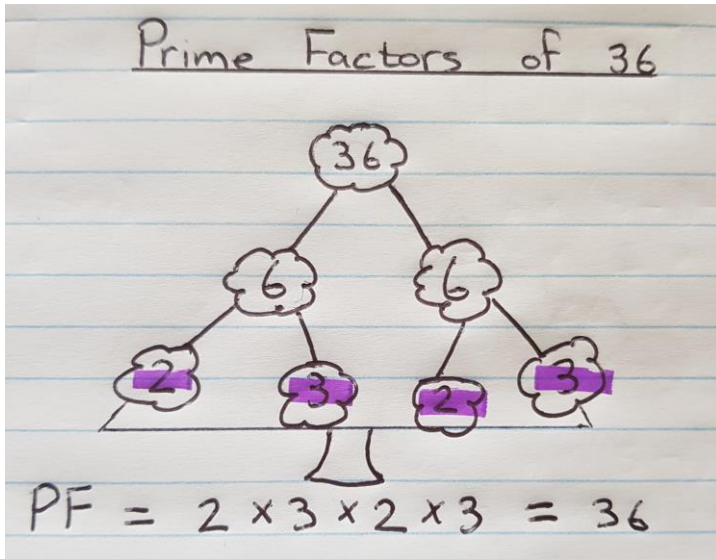 Prime Factors of 36
36
6 6
2 3 2 3
PF = 2 × 3 × 2 × 3 = 36